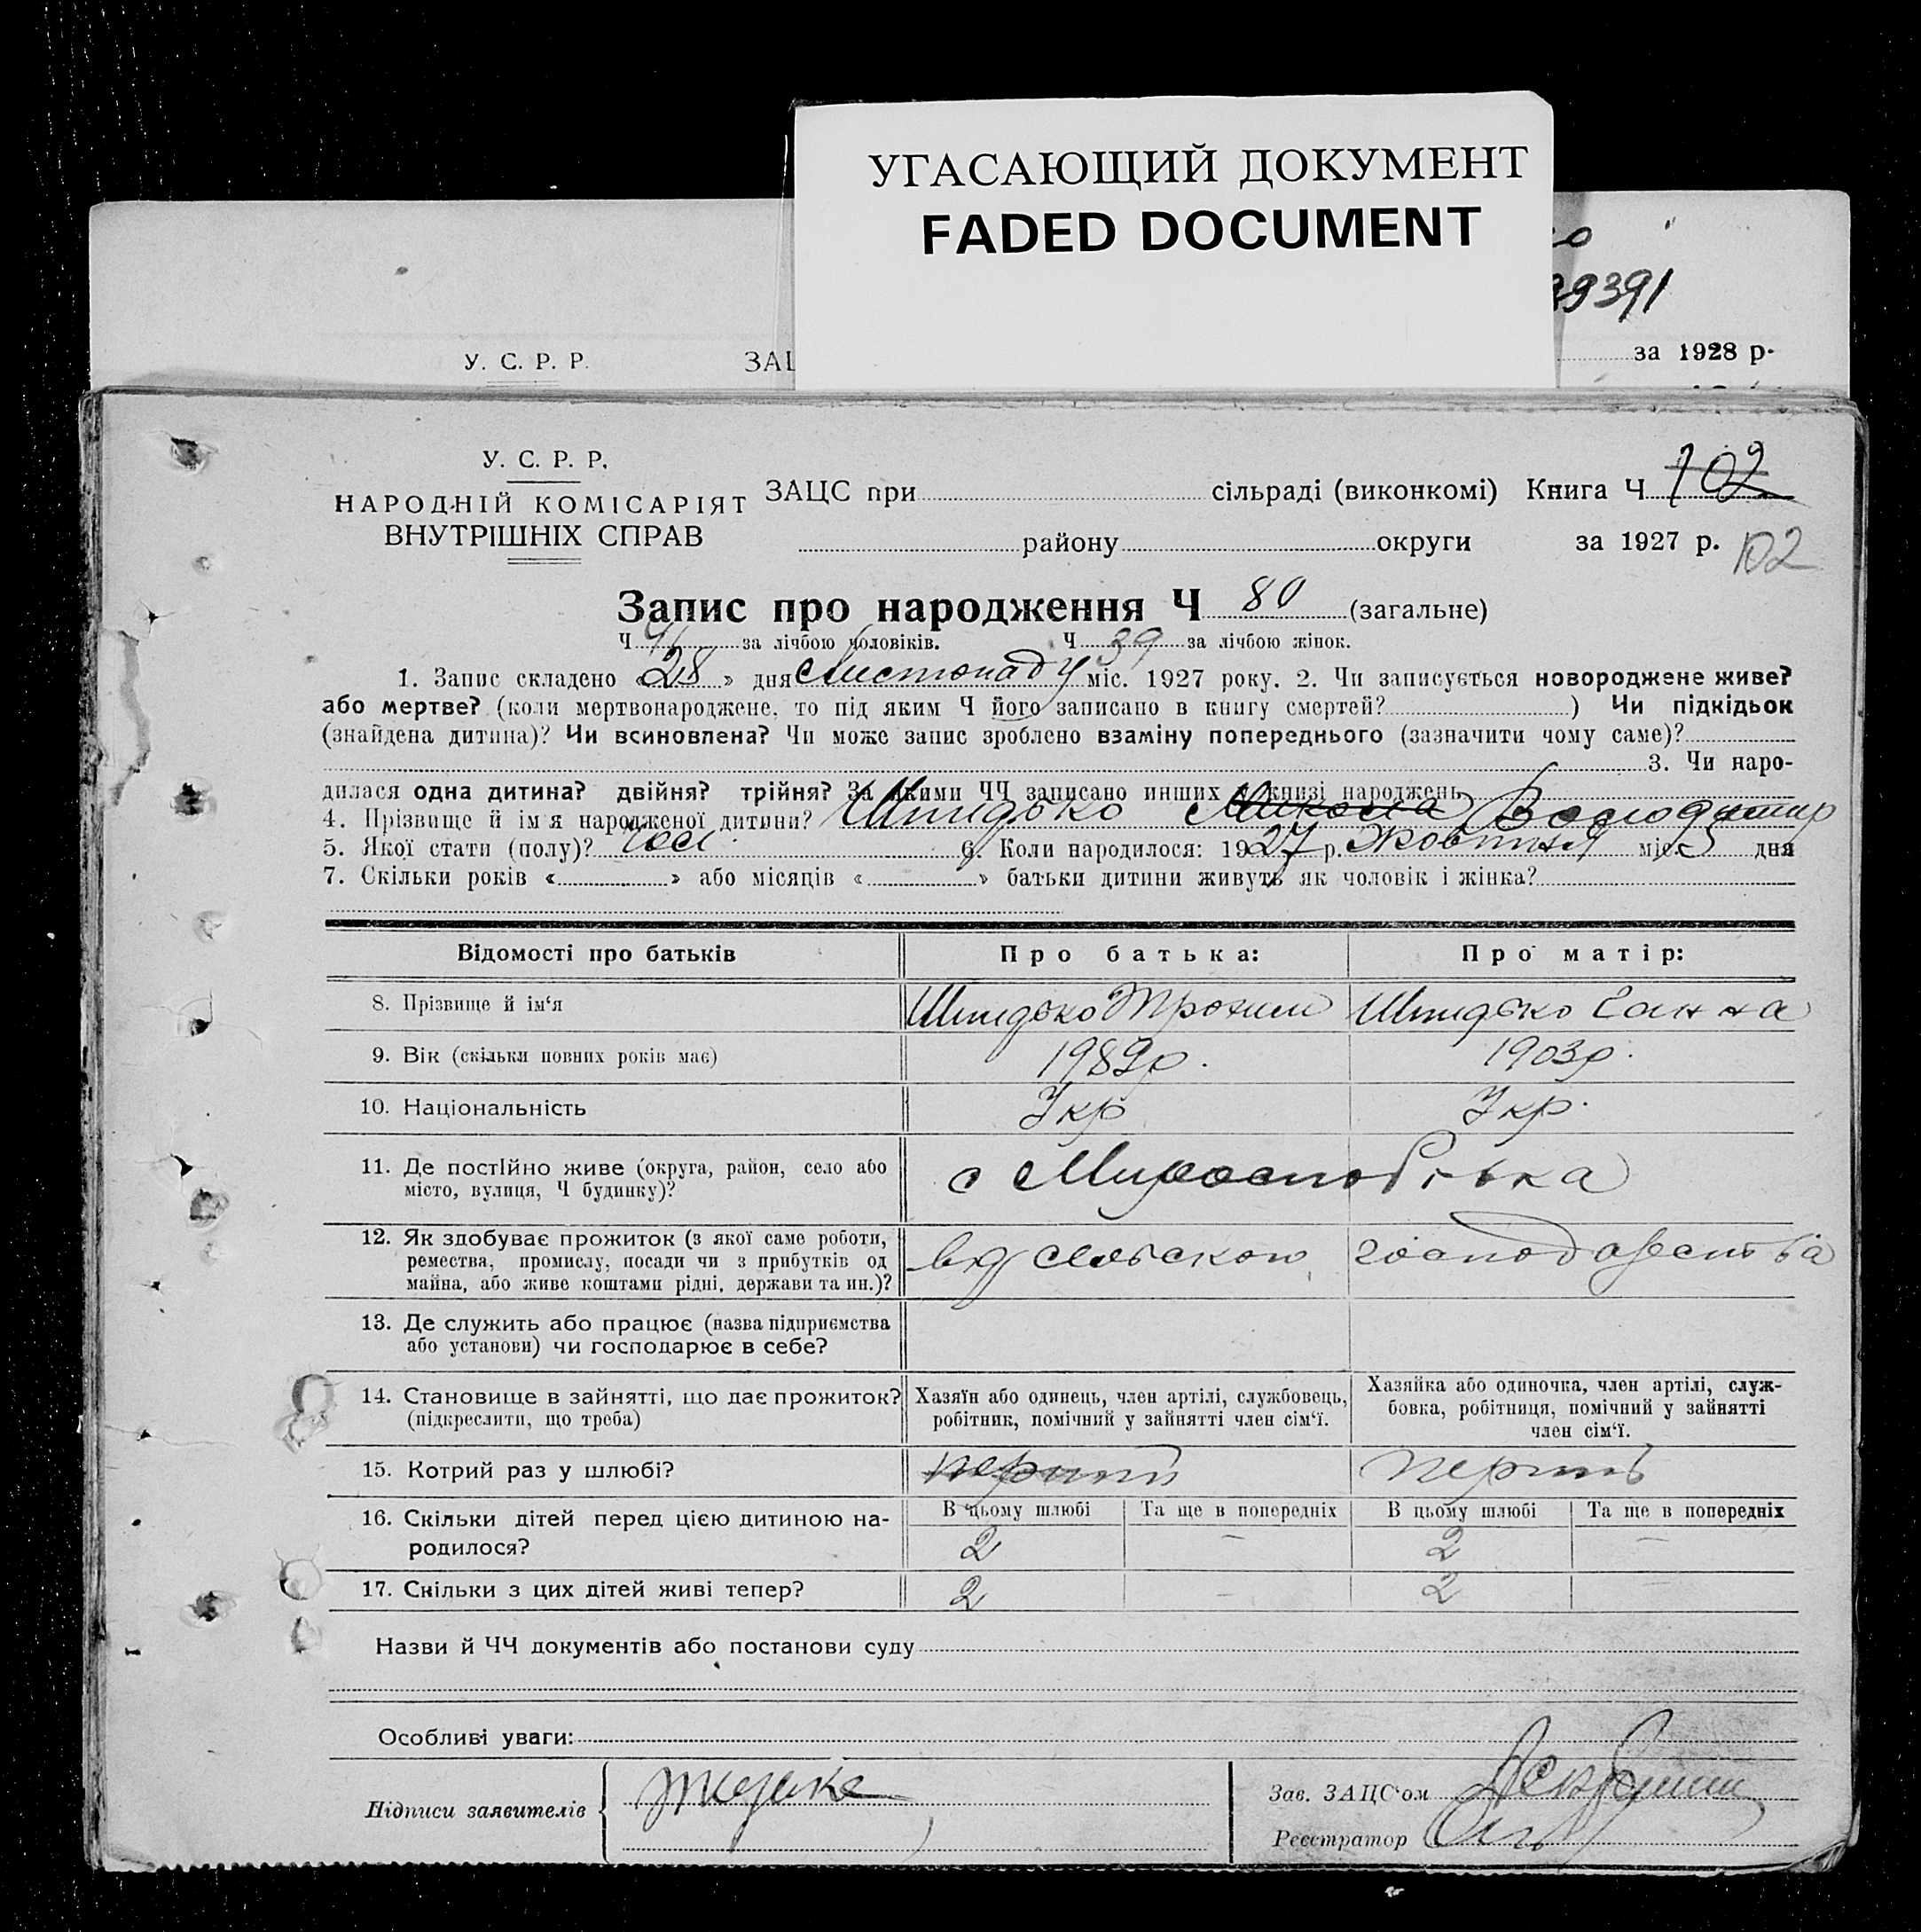 УГАСАЮЩИЙ ДОКУМЕНТ
FADED DOCUMENT
39391
У. С. Р. Р. ЗАЦ за 1928 р.
У. С. Р. Р.
НАРОДНІЙ КОМІСАРІЯТ
ВНУТРІШНІХ СПРАВ
ЗАЦС при сільраді (виконкомі) Книга Ч 102
району округи за 1927 р. 102
Запис про народження Ч 80 (загальне)
Ч 41 за лічбою чоловіків. Ч 39 за лічбою жінок.
1. Запис складено «28» дня Листопаду міс. 1927 року. 2. Чи записується новороджене живе?
або мертве? (коли мертвонароджене, то під яким Ч його записано в книгу смертей? ) Чи підкідьок
(знайдена дитина)? Чи всиновлена? Чи може запис зроблено взаміну попереднього (зазначити чому саме)?
3. Чи наро-
дилася одна дитина? двійня? трійня? За якими ЧЧ записано инших в книзі народжень
4. Прізвище й ім'я народженої дитини? Шпидько Микола Володимир
5. Якої стати (полу)? Чол. 6. Коли народилося: 1927 р. Жовтня міс. 5 дня
7. Скільки років « » або місяців « » батьки дитини живуть як чоловік і жінка?
Відомості про батьків Про батька: Про матір:
8. Прізвище й ім‘я Шпидько Трохим Шпидько Ганна
9. Вік (скільки повних років має) 1989р. 1903р.
10. Національність Укр Укр.
11. Де постійно живе (округа, район, село або
місто, вулиця, Ч будинку)?
с
12. Як здобуває прожиток (з якої саме роботи,
ремества, промислу, посади чи з прибутків од
майна, або живе коштами рідні, держави та ин.)?
від сільского господарства
13. Де служить або працює (назва підприємства
або установи) чи господарює в себе?
14. Становище в зайнятті, що дає прожиток?
(підкреслити, що треба)
Хазяїн або одинець, член артілі, службовець,
робітник, помічний у зайнятті член сім‘ї.
Хазяйка або одиночка, член артілі, служ-
бовка, робітниця, помічний у зайнятті
член сім‘ї.
15. Котрий раз у шлюбі? перший перший
В цьому шлюбі Та ще в попередніх В цьому шлюбі Та ще в попередніх
16. Скільки дітей перед цією дитиною на-
родилося?
2 — 2 —
17. Скільки з цих дітей живі тепер? 2 — 2 —
Назви й ЧЧ документів або постанови суду
Особливі уваги:
Підписи заявителів
Зав. ЗАЦС‘ом
Реєстратор